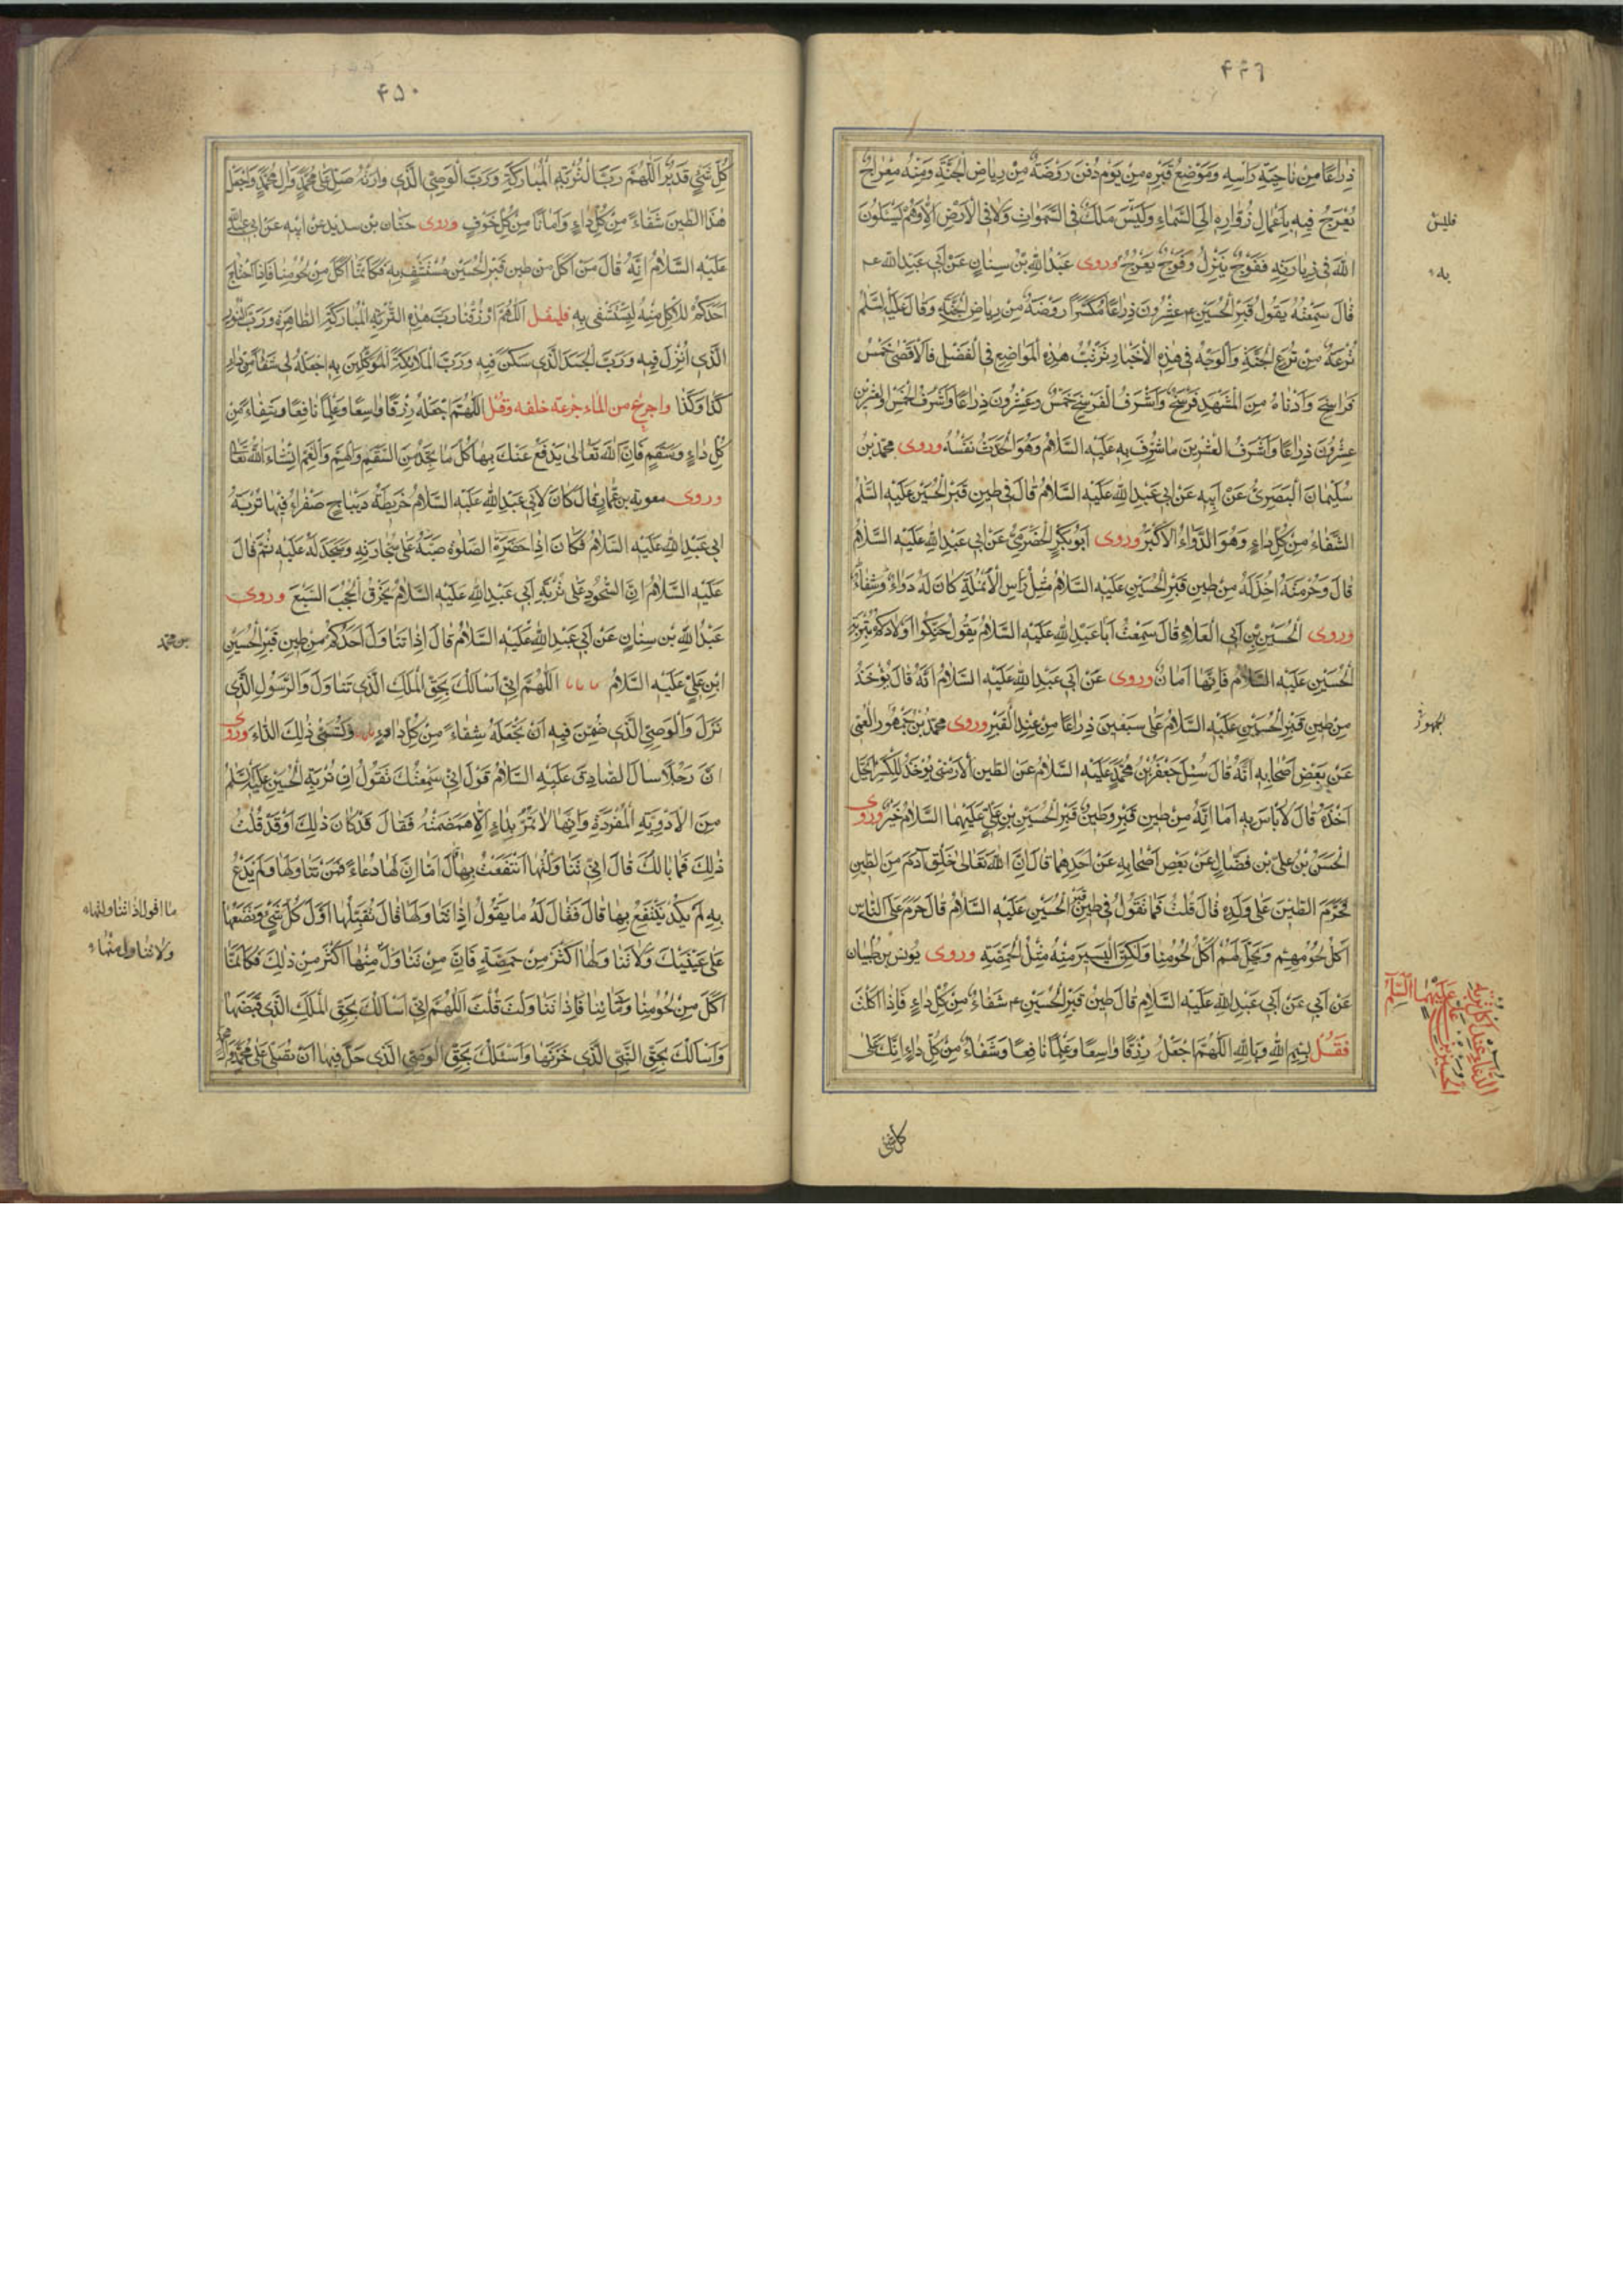 ۴۴۹
ذِراعًا مِنْ ناحِيَةِ رَأسِهِ وَمَوْضِعُ قَبْرِهِ مِنْ يَوْمِ دُفِنَ رَوْضَةٌ مِنْ رِياضِ الْجَنَّةِ وَمِنْهُ مِعْراجٌ
يُعْرَجُ فيهِ بِاَعْمالِ زُوّارِهِ اِلَى السَّماءِ وَلَيْسَ مَلَكٌ فِى السَّمٰواتِ وَلا فِى الْاَرْضِ اِلّا وَهُمْ يَسْئَلُونَ
اللهَ فى زِيارَتِهِ فَفَوْجٌ يَنْزِلُ وَفَوْجٌ يَعْرُجُ وروى عَبْدُ اللهِ بْنِ سِنانٍ عَنْ اَبى عَبْدِ اللهِ عم
قالَ سَمِعْتُهُ يَقُولُ قَبْرُ الْحُسَيْنِ ع عِشْرُونَ ذِراعًا مُكَسَّرًا رَوْضَةٌ مِنْ رِياضِ الْجَنَّةِ وَقالَ عَلَيْهِ السَّلَمُ
تُرْعَةٌ مِنْ تُرَعِ الْجَنَّةِ وَالْوَجْهُ فى هٰذِهِ الْاَخْبارِ تَرَتُّبُ هٰذِهِ الْمَواضِعِ فِى الْفَضْلِ فَالْاَقْصٰى خَمْسُ
فَراسِخَ وَاَدْناهُ مِنَ الْمَشْهَدِ فَرْسَخٌ وَاَشْرَفُ الْفَرْسَخِ خَمْسٌ وَعِشْرُونَ ذِراعًا وَاَشْرَفُ الْخَمْسِ والعِشْرين
عِشْرُونَ ذِراعًا وَاَشْرَفُ الْعِشْرينَ ما شُرِّفَ بِهِ عَلَيْهِ السَّلامُ وَهُوَ الْجَدَثُ نَفْسُهُ وروى محمّد بْنُ
سُلَيْمانَ الْبَصَرِىُّ عَنْ اَبيهِ عَنْ اَبى عَبْدِ اللهِ عَلَيْهِ السَّلامُ قالَ فى طينِ قَبْرِ الْحُسَيْنِ عَلَيْهِ السَّلَمُ
الشِّفاءُ مِنْ كُلِّ داءٍ وَهُوَ الدَّواءُ الْاَكْبَرُ وروى اَبُو بَكْرٍ الْحَضْرَمِىُّ عَنْ اَبى عَبْدِ اللهِ عَلَيْهِ السَّلامُ
مِنْ طينِ قَبْرِ الْحُسَيْنِ عَلَيْهِ السَّلامُ مِثْلَ رَأسِ الْاَنْمُلَةِ كانَ لَهُ دَواءً وَشِفاءً
وروى الْحُسَيْنِ بْنِ اَبى الْعَلاءِ قالَ سَمِعْتُ اَبا عَبْدِ اللهِ عَلَيْهِ السَّلامُ يَقُولُ حَنِّكُوا اَوْلادَكُمْ بِتُرْبَةِ
الْحُسَيْنِ عَلَيْهِ السَّلامُ فَاِنَّها اَمانٌ وروى عَنْ اَبى عَبْدِ اللهِ عَلَيْهِ السَّلامُ اَنَّهُ قالَ يُؤْخَذُ
مِنْ طينِ قَبْرِ الْحُسَيْنِ عَلَيْهِ السَّلامُ عَلى سَبْعينَ ذِراعًا مِنْ عِنْدِ الْقَبْرِ وروى محمّد بْنُ جُمْهُور الْعَمّى
عَنْ بَعْضِ اَصْحابِهِ اَنَّهُ قالَ سُئِلَ جَعْفَرُ بْنُ مُحَمَّدٍ عَلَيْهِ السَّلامُ عَنِ الطّينِ الْاَرْمَنى يُؤْخَذُ لِلْكَسْرِ اَيَحِلُّ
اَخْذُهُ قالَ لا بَأسَ بِهِ اَما اِنَّهُ مِنْ طينِ قَبْرِ وَطينُ قَبْرِ الْحُسَيْنِ بْنِ عَلِىٍّ عَلَيْهِمَا السَّلامُ خَيْرٌ وروى
الْحَسَنُ بْنُ عَلىِّ بْنِ فَضّالٍ عَنْ بَعْضِ اَصْحابِهِ عَنْ اَحَدِهِما قالَ اِنَّ اللهَ تَعالى خَلَقَ آدَمَ مِنَ الطّينِ
فَحَرَّمَ الطّينَ عَلى وَلَدِهِ قالَ قُلْتُ فَما تَقُولُ فى طينِ قبر الْحُسَيْنِ عَلَيْهِ السَّلامُ قالَ حَرَمَ عَلَى النّاسِ
اَكْلُ لُحُومِهِمْ وَيَحِلُّ لَهُمْ اَكْلُ لُحُومِنا وَلٰكِنَّ الْيَسيرَ مِنْهُ مِثْلُ الْحِمَّصَةِ وروى يُونُسُ بْنُ ظَبْيان
عَنْ اَبى عَنْ اَبى عَبْدِ اللهِ عَلَيْهِ السَّلامِ قالَ طينُ قَبْرِ الْحُسَيْنِ ع شَفاءٌ مِنْ كُلِّ داءٍ فَاِذا اَكَلْتَ
فَقُلْ بِسْمِ اللهِ وَبِاللهِ اَللّٰهُمَّ اجْعَلْ رِزْقًا واسِعًا وَعِلْمًا نافِعًا وَشَفاءً مِنْ كُلِّ داءٍ اِنَّكَ عَلى
فليس
به
الجمهور
الدّعاء عند اكل تربة
الحسين بن علىّ
عليهما السّلم
كل شئ
۴۵۰
كُلِّ شَىْءٍ قَديرٌ اَللّٰهُمَّ رَبَّ التُّرْبَةِ الْمُبارَكَةِ وَرَبَّ الْوَصِىِّ الَّذى وارَتْهُ صَلِّ عَلى مُحَمَّدٍ وَآلِ مُحَمَّدٍ وَاجْعَلْ
هٰذَا الطّينَ شَفاءً مِنْ كُلِّ داءٍ وَاَمانًا مِنْ كُلِّ خَوْفٍ وروى حَنان بْن سدير عَنْ اَبيه عَنْ ابى عبد الله
عَلَيْهِ السَّلامُ اِنَّهُ قالَ مَنْ اَكَلَ مِنْ طينِ قَبْرِ الْحُسَيْنِ مُسْتَشْفٍ بِهِ فَكَاَنَّما اَكَلَ مِنْ لُحُومِنا فَاِذَا احْتاجَ
اَحَدُكُمْ لِلْاَكْلِ مِنْهُ لِيَسْتَشْفى بِهِ فليقل اَللّٰهُمَّ ارْزُقْنا رَبَّ هٰذِهِ التُّرْبَةِ الْمُبارَكَةِ الطّاهِرَةِ وَرَبَّ النُّورِ
الَّذى اُنْزِلَ فيهِ وَرَبَّ الْجَسَدِ الَّذى سَكَنَ فيهِ وَرَبَّ الْمَلائِكَةِ الْمُوَكَّلينَ بِهِ اجْعَلْهُ لى شَفاءً مِنْ داءِ
كَذا وَكَذا واجرع من الماء جرعة خلفه وقل اَللّٰهُمَّ اجْعَلْهُ رِزْقًا واسِعًا وَعِلْمًا نافِعًا وَشِفاءً مِنْ
كُلِّ داءٍ وَسَقَمٍ فَاِنَّ اللهَ تَعالى يَدْفَعُ عَنْكَ بِها كُلَّ ما تَجِدُ مِنَ السَّقَمِ وَالْهَمِّ وَالْغَمِّ اِنْشاءَ اللهُ تَعالى
وروى معوية بْنِ عَمّارٍ قالَ كانَ لِاَبى عَبْدِ اللهِ عَلَيْهِ السَّلامُ خَريطَةُ ديباجٍ صَفْراءُ فيها تُرْبَةُ
اَبى عَبْدِ اللهِ عَلَيْهِ السَّلامُ فَكانَ اِذا حَضَرَتِ الصَّلوةُ صَبَّهُ عَلى سَجّادَتِهِ وَسَجَدَ لَهُ عَلَيْهِ ثُمَّ قالَ
عَلَيْهِ السَّلامُ اِنَّ السُّجُودَ عَلى تُرْبَةِ اَبى عَبْدِ اللهِ عَلَيْهِ السَّلامُ يَخْرِقُ الْحُجُبَ السَّبْعَ وروى
عَبْدُ اللهِ بْنِ سِنانٍ عَنْ اَبى عَبْدِ اللهِ عَلَيْهِ السَّلامُ قالَ اِذا تَناوَلَ اَحَدُكُمْ مِنْ طينِ قَبْرِ الْحُسَيْنِ
ابْنِ عَلِىٍّ عَلَيْهِ السَّلامُ اَللّٰهُمَّ اِنّى اَسْأَلُكَ بِحَقِّ الْمَلَكِ الَّذى تَناوَلَ وَالرَّسُولِ الَّذى
نَزَلَ وَالْوَصِىِّ الَّذى ضُمِّنَ فيهِ اَنْ تَجْعَلَهُ شِفاءً مِنْ كُلِّ داءٍ وَتُسَمّى ذٰلِكَ الدّاءَ وروى
اَنَّ رَجُلًا سالَ الصّادِقَ عَلَيْهِ السَّلامُ قَوْلَ اِنّى سَمِعْتُكَ تَقُولُ اِنَّ تُرْبَةَ الْحُسَيْنِ عَلَيْهِ السَّلَمُ
مِنَ الْاَدْوِيَةِ الْمُفْرَدَةِ وَاِنَّها لا تَمُرُّ بِداءٍ اِلّا هَضَمَتْهُ فَقالَ قَدْ كانَ ذٰلِكَ اَوْ قَدْ قُلْتُ
ذٰلِكَ فَما بالُكَ قالَ اِنّى تَناوَلْتُها انْتَفَعْتُ بِها قالَ اَما اِنَّ لَها دُعاءً فَمَنْ تَناوَلَها وَلَمْ يَدْعُ
بِهِ لَمْ يَكَدْ يَنْتَفِعُ بِها قالَ فَقالَ لَهُ ما يَقُولُ اِذا تَناوَلَها قالَ تُقَبِّلُها اَوَّلَ كُلِّ شَىْءٍ وَتَضَعُها
عَلى عَيْنَيْكَ وَلا تَناوَلْها اَكْثَرَ مِنْ حِمَّصَةٍ فَاِنَّ مِنْ تَناوَلَ مِنْها اَكْثَرَ مِنْ ذٰلِكَ فَكَاَنَّما
اَكَلَ مِنْ لُحُومِنا وَدِمائِنا فَاِذا تَناوَلْتَ قُلْتَ اَللّٰهُمَّ اِنّى اَسْأَلُكَ بِحَقِّ الْمَلَكِ الَّذى قَبَضَها
وَاَسْأَلُكَ بِحَقِّ النَّبِىِّ الَّذى خَزَنَها وَاَسْئَلُكَ بِحَقِّ الْوَصِىِّ الَّذى حَلَّ فيها اَنْ تُصَلِّىَ عَلى مُحَمَّدٍ وَآلِ محمّد
بن محمّد
ما اقول اذا تناولتها
ولا تناول منها